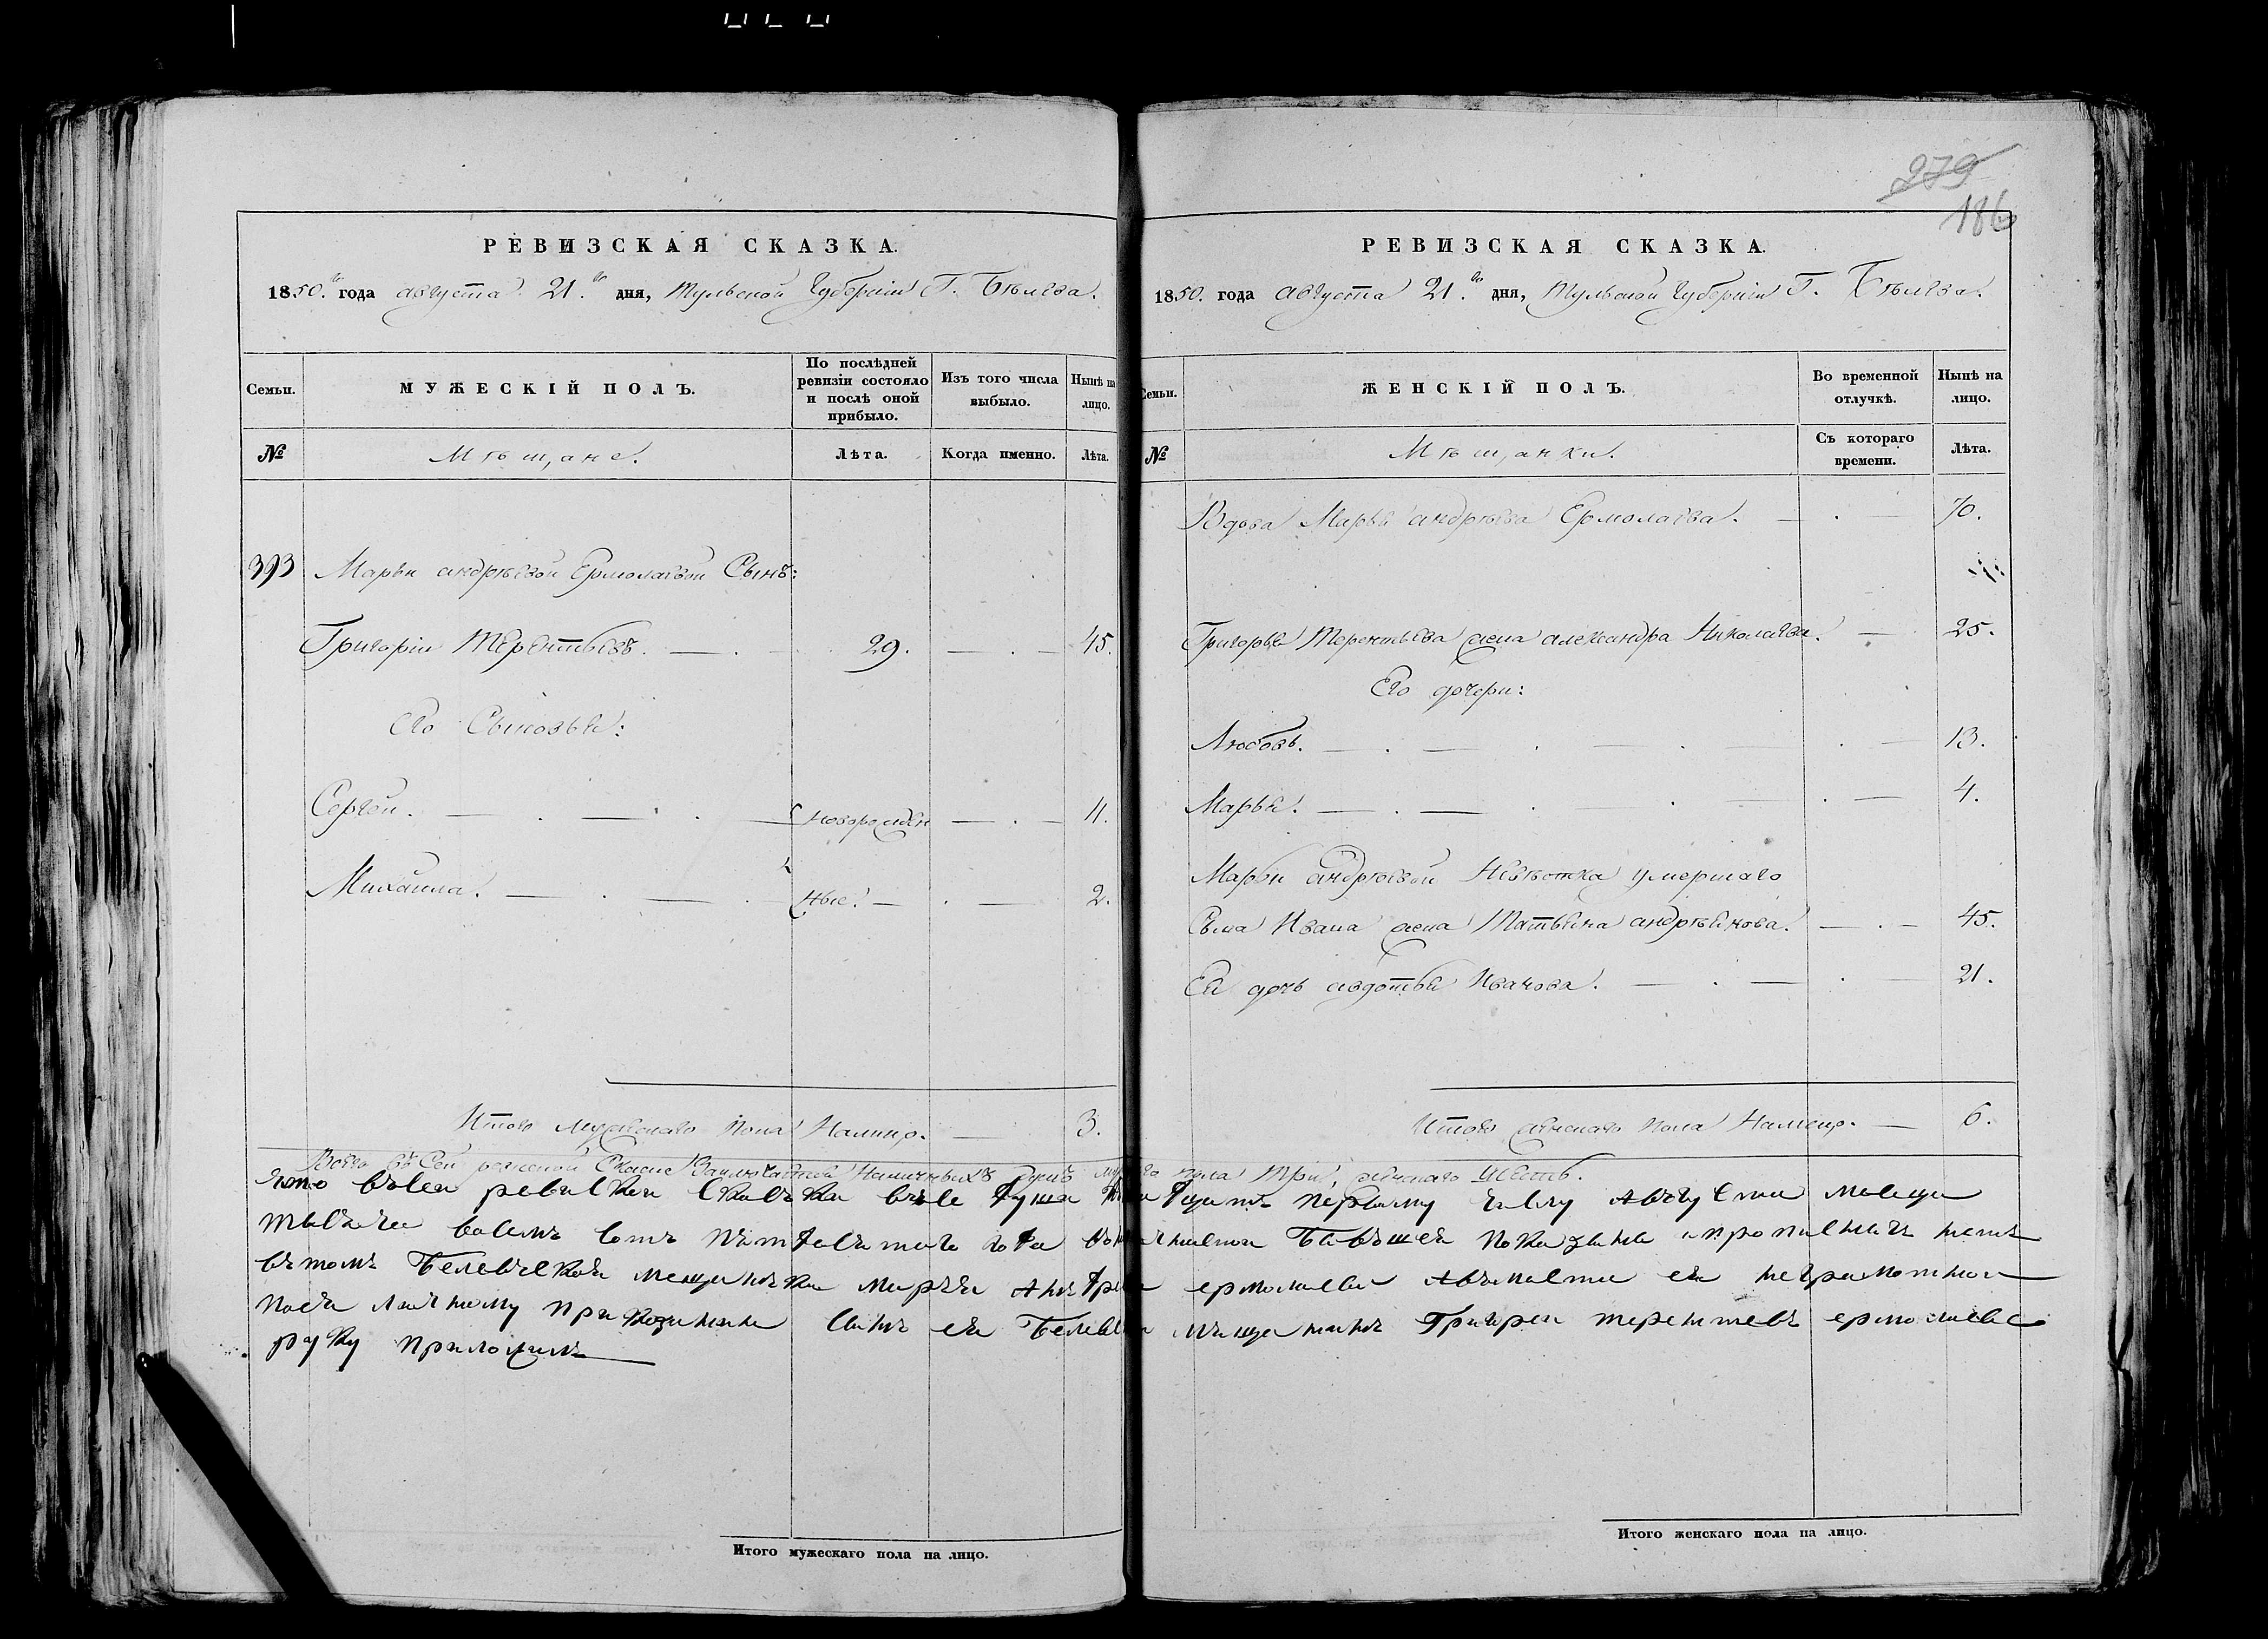 279
186
РЕВИЗСКАЯ СКАЗКА.
1850.го года августа 21.го дня, Тульской Губерніи Г. Бѣлева.
Семьи.
МУЖЕСКІЙ ПОЛЪ.
По послѣдней ревизіи состояло и послѣ оной прибыло.
Изъ того числа выбыло.
Нынѣ на лицо.
№
Мѣщане.
Лѣта.
Когда именно.
Лѣта.
393 Марьи андрѣевой Ермолаевой Сынъ:
Григорій Терентьевъ. — 29. — 45.
Его Сыновья:
Сергей. — новорожден — 11.
Михаила. — ные. — 2.
Итого мужескаго пола Налицо. — 3.
РЕВИЗСКАЯ СКАЗКА.
1850. года августа 21.го дня, Тульской Губерніи Г. Бѣлева.
Семьи.
ЖЕНСКІЙ ПОЛЪ.
Во временной отлучкѣ.
Нынѣ на лицо.
№
Мѣщанки.
Съ котораго времени.
Лѣта.
Вдова Марья андрѣева Ермолаева. — 70.
Григорья Терентьева жена александра Николаева. — 25.
Его дочери:
Любовь. — 13.
Марья. — 4.
Марьи андрѣевой Невѣстка умершаго
Сына Ивана жена Татьяна андрѣянова. — 45.
Ея дочь авдотья Иванова. — 21.
Итого женскаго пола Налицо. — 6.
Всего въ Сей ревизской Сказке Заключается Наличныхъ душъ пола Три, женскаго Шесть.
что въсеи ревиской скаске все душа первому числу Августа месеца
тысеча восемъ сотъ петдесетаго года Бывшея показаны ипрописныхъ нетъ
вътомъ Белевская мещанъка маръя Андрева ермолаева авъместа ея неграмотнои
поея личному приказанию сынъ ея Белевски мѣщенинъ Григореи терентевъ ермолаевъ
руку приложилъ
Итого мужескаго пола на лицо.
Итого женскаго пола на лицо.